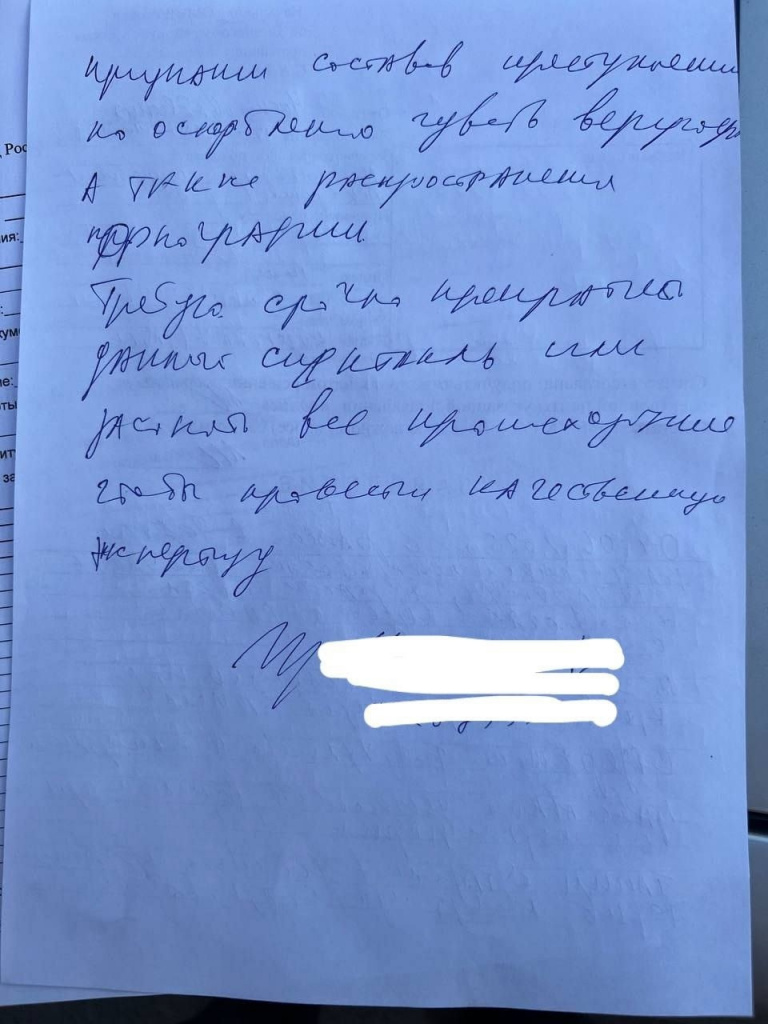 признаки составов преступлений
по оскорблению чувств верующих
А также распространения
порнографии.
Требую срочно прекратить
данный спектакль или
заснять все происходящие
чтобы провести качественную
экспертизу
Рос
ия: